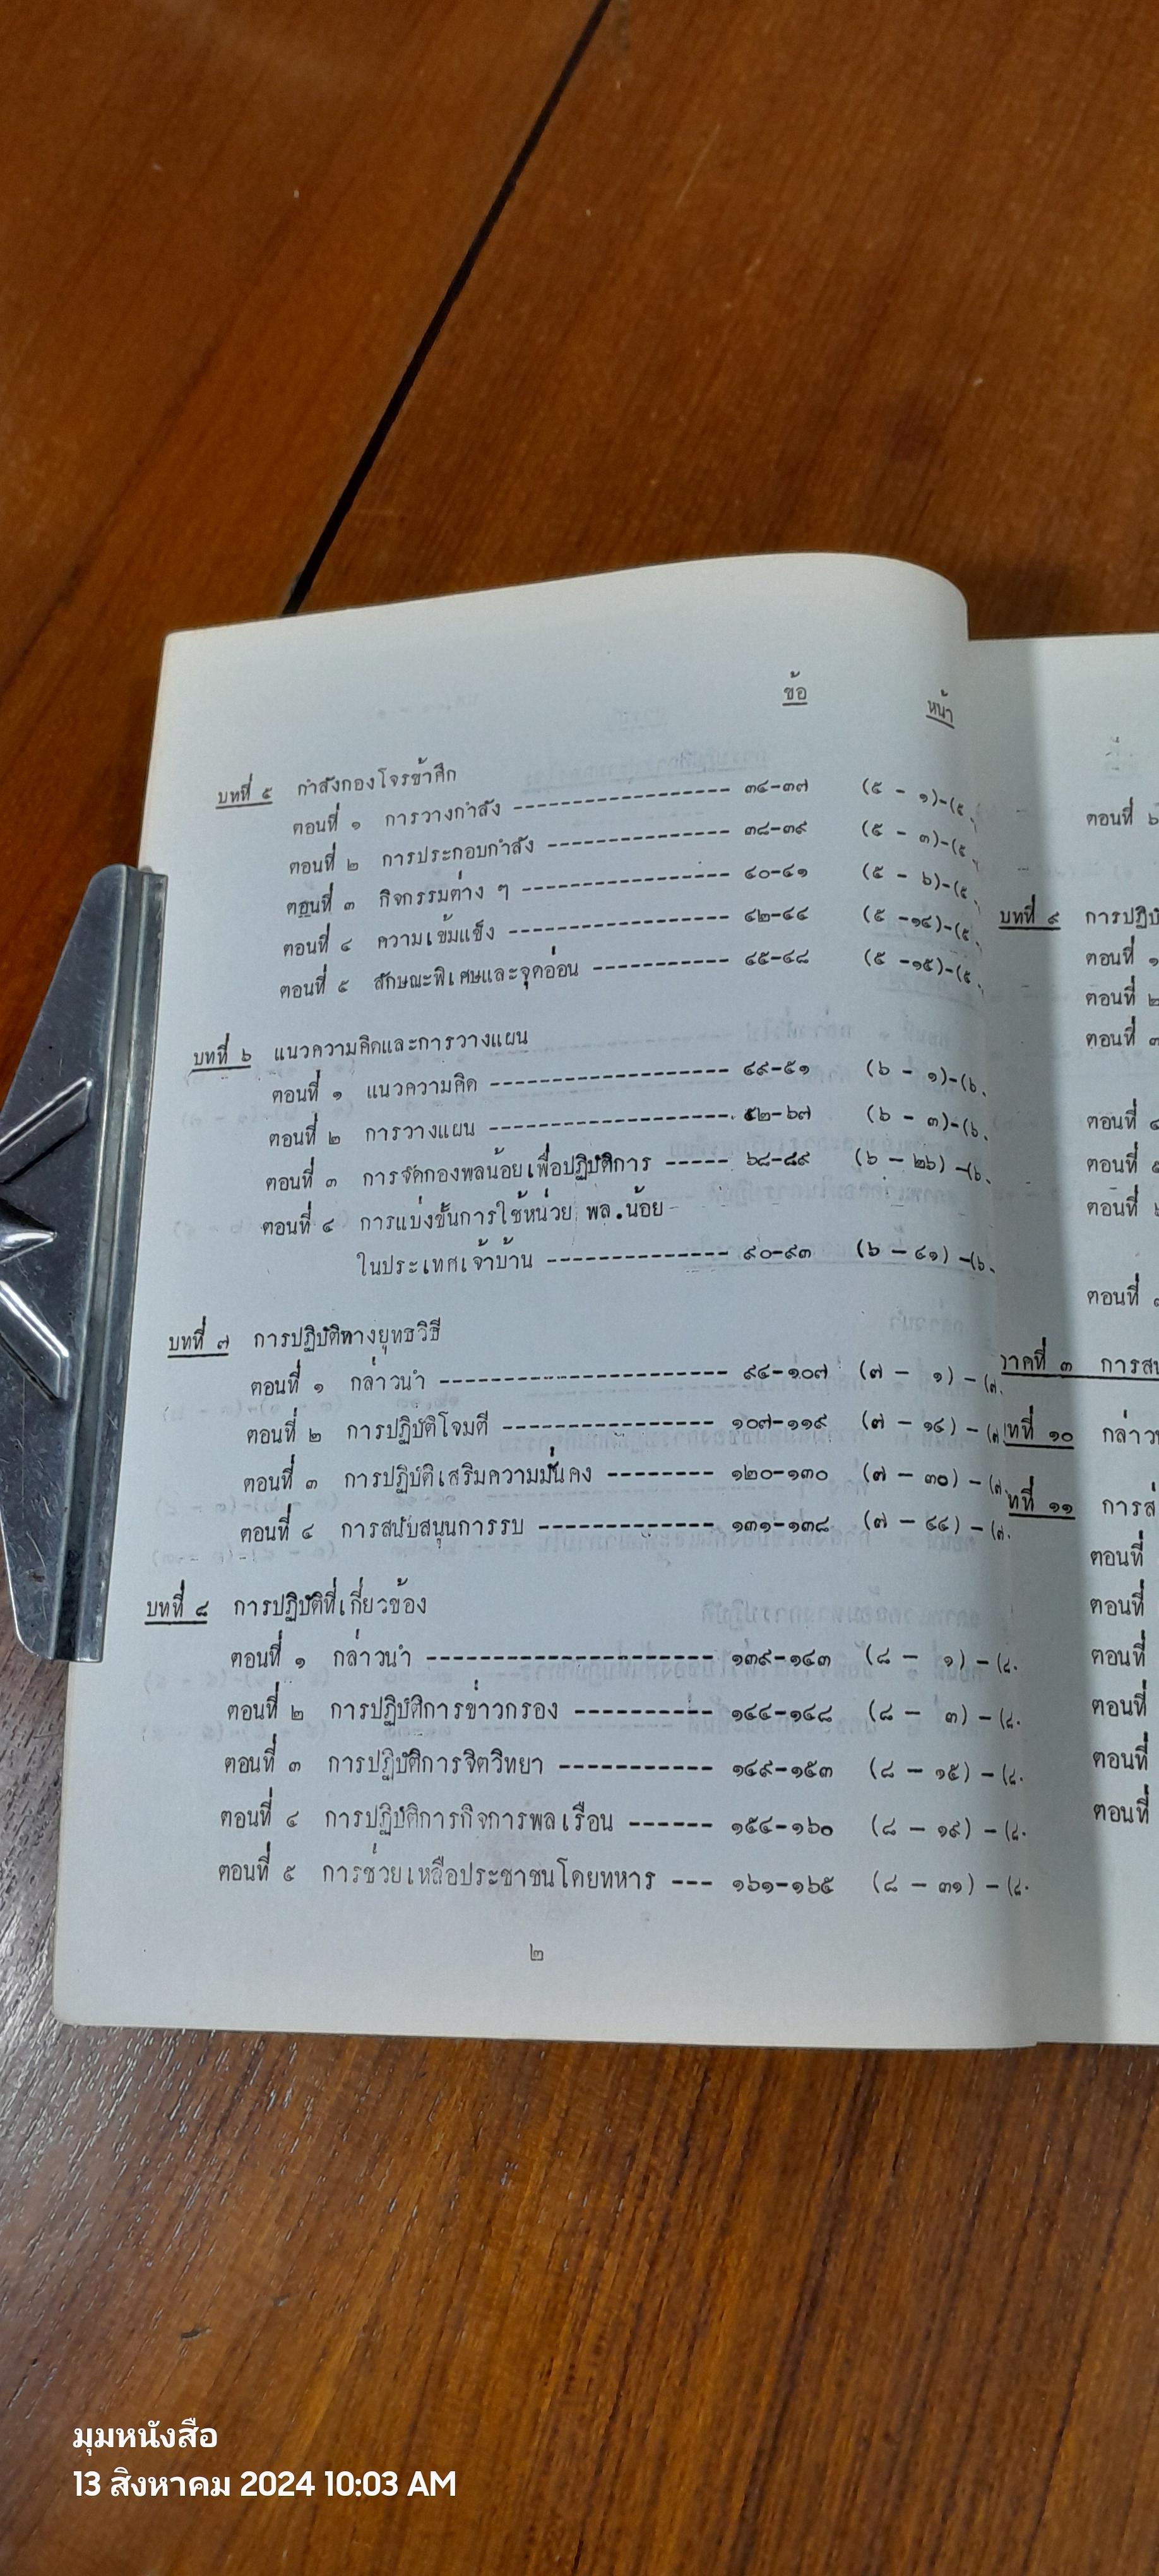 ข้อ หน้า
บทที่ ๕ กำลังกองโจรข้าศึก
ตอนที่ ๑ การวางกำลัง ---------------------- ๓๔-๓๗ (๕ - ๑)-(๕
ตอนที่ ๒ การประกอบกำลัง ------------------- ๓๘-๓๙ (๕ - ๓)-(๕
ตอนที่ ๓ กิจกรรมต่าง ๆ --------------------- ๔๐-๔๑ (๕ - ๖)-(๕
ตอนที่ ๔ ความเข้มแข็ง ---------------------- ๔๒-๔๔ (๕ -๑๔)-(๕
ตอนที่ ๕ ลักษณะพิเศษและจุดอ่อน ------------- ๔๕-๔๘ (๕ -๑๕)-(๕
บทที่ ๖ แนวความคิดและการวางแผน
ตอนที่ ๑ แนวความคิด ----------------------- ๔๙-๕๑ (๖ - ๑)-(๖
ตอนที่ ๒ การวางแผน ----------------------- ๕๒-๖๗ (๖ - ๓)-(๖
ตอนที่ ๓ การจัดกองพลน้อยเพื่อปฏิบัติการ ----- ๖๘-๘๙ (๖ - ๒๖) -(๖
ตอนที่ ๔ การแบ่งขั้นการใช้หน่วย พล.น้อย
ในประเทศเจ้าบ้าน ---------------- ๙๐-๙๓ (๖ - ๔๑) -(๖
บทที่ ๗ การปฏิบัติทางยุทธวิธี
ตอนที่ ๑ กล่าวนำ -------------------------- ๙๔-๑๐๗ (๗ - ๑) - (๗
ตอนที่ ๒ การปฏิบัติโจมตี ------------------- ๑๐๗-๑๑๙ (๗ - ๑๔) - (๗
ตอนที่ ๓ การปฏิบัติเสริมความมั่นคง -------- ๑๒๐-๑๓๐ (๗ - ๓๐) - (๗
ตอนที่ ๔ การสนับสนุนการรบ ------------- ๑๓๑-๑๓๘ (๗ - ๔๔) - (๗
บทที่ ๘ การปฏิบัติที่เกี่ยวข้อง
ตอนที่ ๑ กล่าวนำ --------------------- ๑๓๙-๑๔๓ (๘ - ๑) - (๘
ตอนที่ ๒ การปฏิบัติการข่าวกรอง ---------- ๑๔๔-๑๔๘ (๘ - ๓) - (๘
ตอนที่ ๓ การปฏิบัติการจิตวิทยา ----------- ๑๔๙-๑๕๓ (๘ - ๑๕) - (๘
ตอนที่ ๔ การปฏิบัติการกิจการพลเรือน ------ ๑๕๔-๑๖๐ (๘ - ๑๙) - (๘
ตอนที่ ๕ การช่วยเหลือประชาชนโดยทหาร --- ๑๖๑-๑๖๕ (๘ - ๓๑) - (๘
๒
ตอนที่ ๖
บทที่ ๙ การปฏิบั
ตอนที่ ๑
ตอนที่ ๒
ตอนที่ ๓
ตอนที่ ๔
ตอนที่ ๕
ตอนที่
ตอนที่
ภาคที่ ๓ การส
ทที่ ๑๐ กล่าว
ทที่ ๑๑ การส่
ตอนที่
ตอนที่
ตอนที่
ตอนที่
ตอนที่
ตอนที่
มุมหนังสือ
13 สิงหาคม 2024 10:03 AM